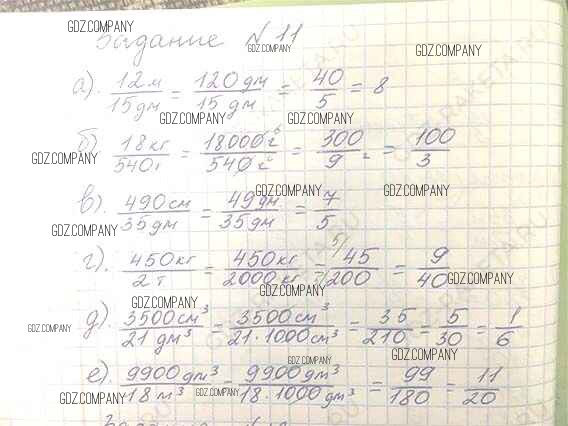 GDZ.COMPANY
Задание №11
GDZ.COMPANY
GDZ.COMPANY
а). 12м/15дм = 120дм/15дм = 40/5 = 8
GDZ.COMPANY
GDZ.COMPANY
б) 18кг/540г = 18000г/540г = 300/9 = 100/3
GDZ.COMPANY
GDZ.COMPANY
GDZ.COMPANY
в). 490см/35дм = 49дм/35дм = 7/5
GDZ.COMPANY
GDZ.COMPANY
г). 450кг/2т = 450кг/2000кг = 45/200 = 9/40
GDZ.COMPANY
GDZ.COMPANY
GDZ.COMPANY
д). 3500см³/21дм³ = 3500см³/21·1000см³ = 35/210 = 5/30 = 1/6
GDZ.COMPANY
GDZ.COMPANY
GDZ.COMPANY
е). 9900дм³/18м³ = 9900дм³/18·1000дм³ = 99/180 = 11/20
GDZ.COMPANY
GDZ.COMPANY
GDZ.COMPANY